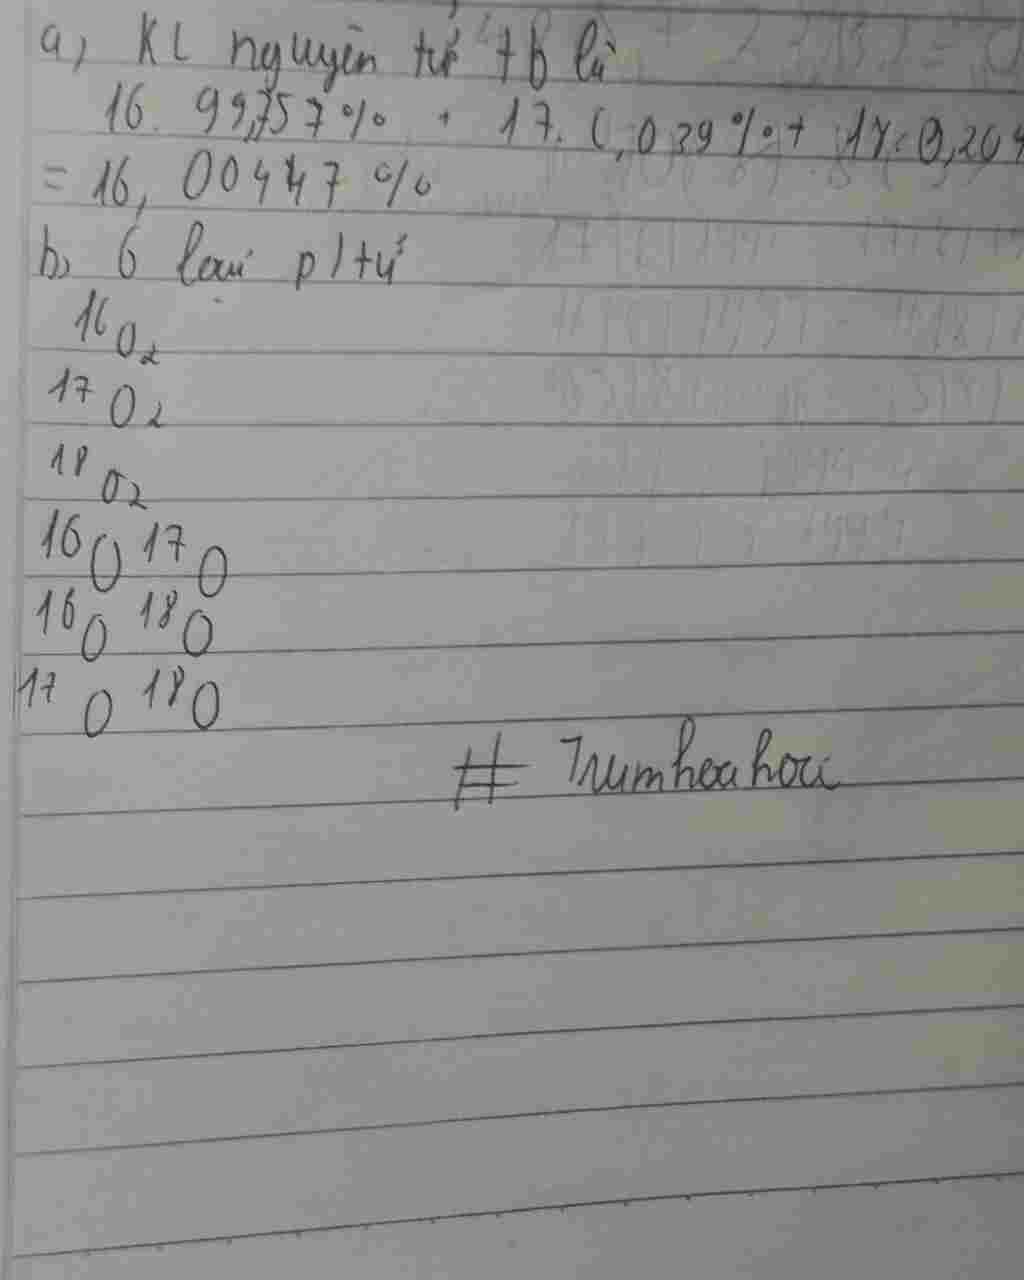 a, KL nguyên tử tb là
16. 99,757% + 17. 0,039% + 18. 0,204
= 16, 00447 %
b, 6 loại p/tử
¹⁶O₂
¹⁷O₂
¹⁸O₂
¹⁶O ¹⁷O
¹⁶O ¹⁸O
¹⁷O ¹⁸O
# Trumhoahoc